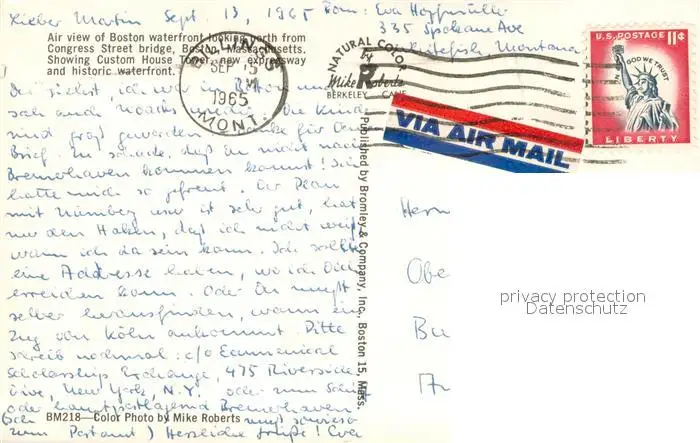 Lieber Martin Sept. 13, 1965 From: Eva
335 Spokane Ave
Whitefish Montana
Air view of Boston waterfront looking north from
Congress Street bridge, Boston, Massachusetts.
Showing Custom House Tower, new expressway
and historic waterfront.
SEP 15
PM
1965
MONT.
NATURAL COLOR
BY
Mike Roberts
BERKELEY CALIF
U.S. POSTAGE 11¢
IN GOD WE TRUST
LIBERTY
VIA AIR MAIL
Du siehst ich war in Boston und
sah auch
sind groß geworden Danke für Den
Brief. Zu schade, daß Du nicht nach
Bremerhaven kommen kannst! Ich
hatte mich so gefreut. Der Plan
mit Nürnberg usw ist sehr gut, hat
nur den Haken, daß ich nicht weiß
wann ich da sein kann. Ich sollte
eine Addresse haben, wo ich Dich
erreichen kann. Oder Du mußt
selber herausfinden, wann ein
Zug von Köln ankommt. Bitte
schreib nochmal: c/o Ecumenical
Scholarship Exchange, 475 Riverside
Drive, New York, N.Y. oder zum Schiff
oder hauptpostlagernd Bremerhaven
(Ich muß sowieso
zum Postamt) Herzliche Grüße! Eva
BM218—Color Photo by Mike Roberts
Published by Bromley & Company, Inc., Boston 15, Mass.
Herrn
Obe
Bu
privacy protection
Datenschutz